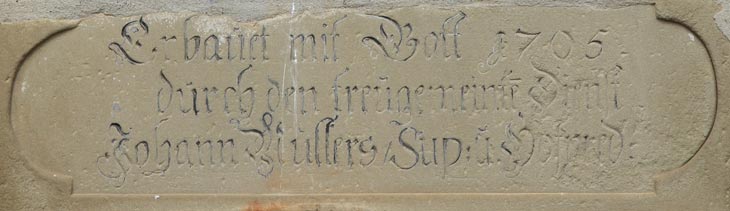 Erbauet mit Gott 1705
durch den treugemeintē Dienst
Johann Müllers / Sup: u. Hofpred: